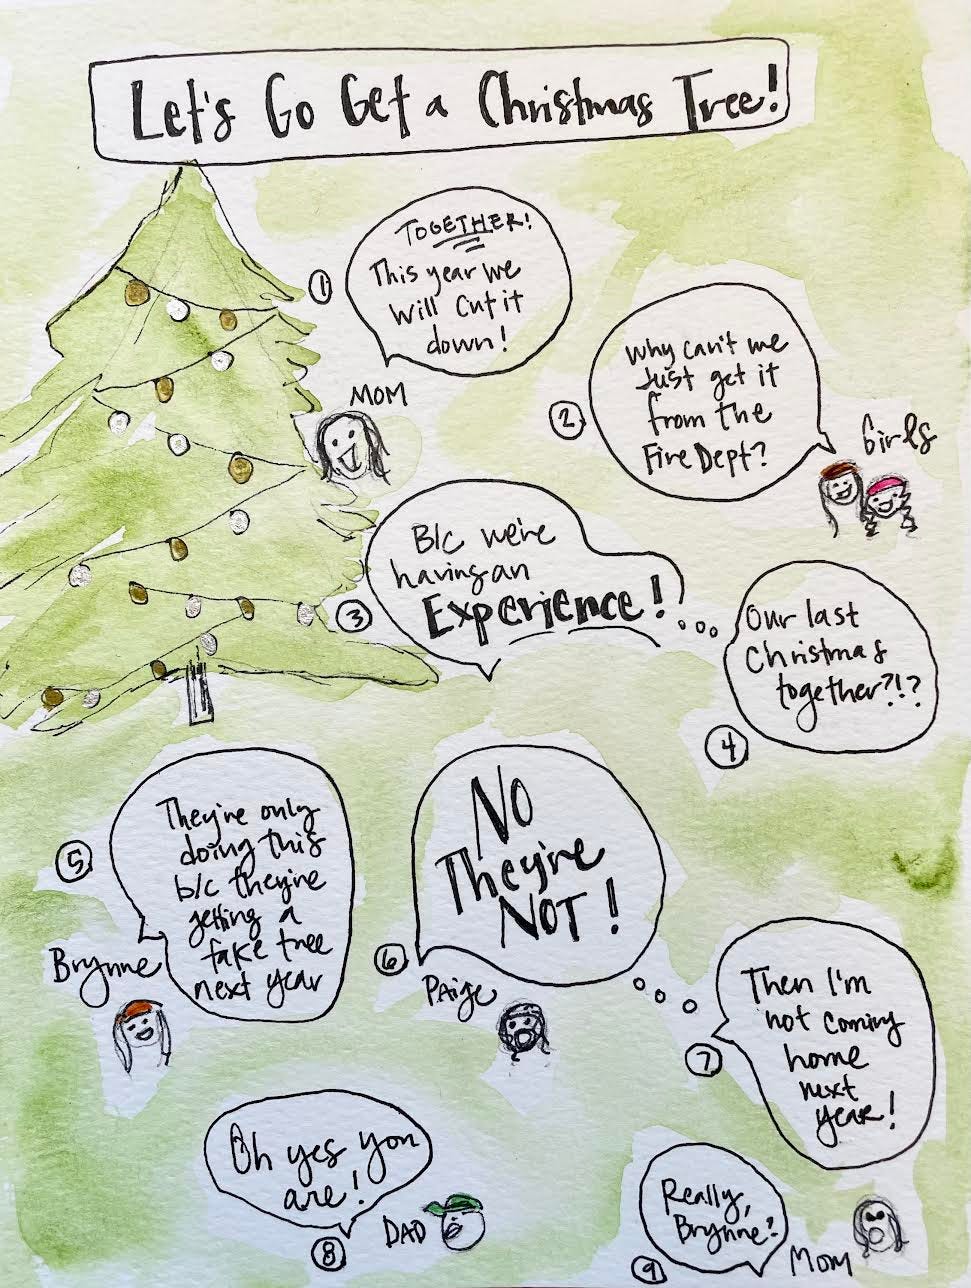 Let's Go Get a Christmas Tree!
1
TOGETHER!
This year we
will cut it
down!
MOM
2
Why can't we
Just get it
from the
Fire Dept?
Girls
3
B/c we're
having an
Experience!
4
Our last
Christmas
together?!?
5
They're only
doing this
b/c they're
getting a
fake tree
next year
Brynne
6
NO
They're
NOT!
PAige
7
Then I'm
not coming
home
next
year!
8
Oh yes you
are!
DAD
9
Really,
Brynne?
Mom